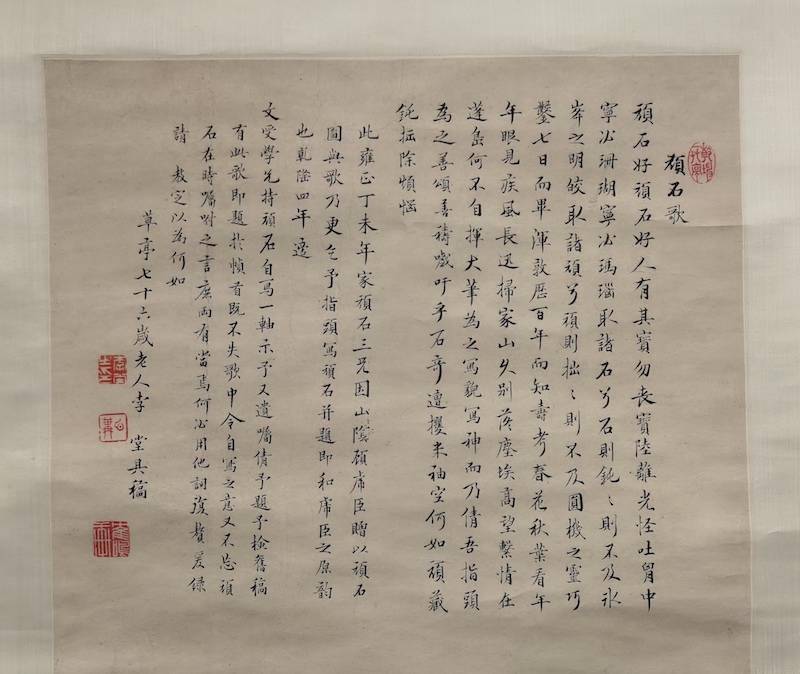 頑石歌
頑石好頑石好人有其寶勿喪寶陸離光怪吐胷中
寧必珊瑚寧必瑪瑙取諸石兮石則鈍〻則不及冰
峯之明皎取諸頑兮頑則拙〻則不及圓機之靈巧
鑿七日而畢渾敦歷百年而知壽考春花秋葉看年
年眼見疾風長迅掃家山久別落塵埃高望繫情在
蓬島何不自揮大華為之寫貌寫神而乃倩吾指頭
為之善頌善禱嘅吁乎石奇遭攫米袖空何如頑藏
鈍拙除煩惱
此雍正丁未年家頑石三兄因山陰顧席臣贈以頑石
圖與歌乃更乞予指頭寫頑石并題即和席臣之原韵
也乾隆四年邊
文受學兄持頑石自寫一軸示予又遺囑倩予題予檢舊稿
有此歌即題於幀首既不失歌中令自寫之意又不忘頑
石在時囑咐之言庶兩有當焉何必用他詞復贅爰錄
請 教定以為何如
草亭七十六歲老人李 堂具稿